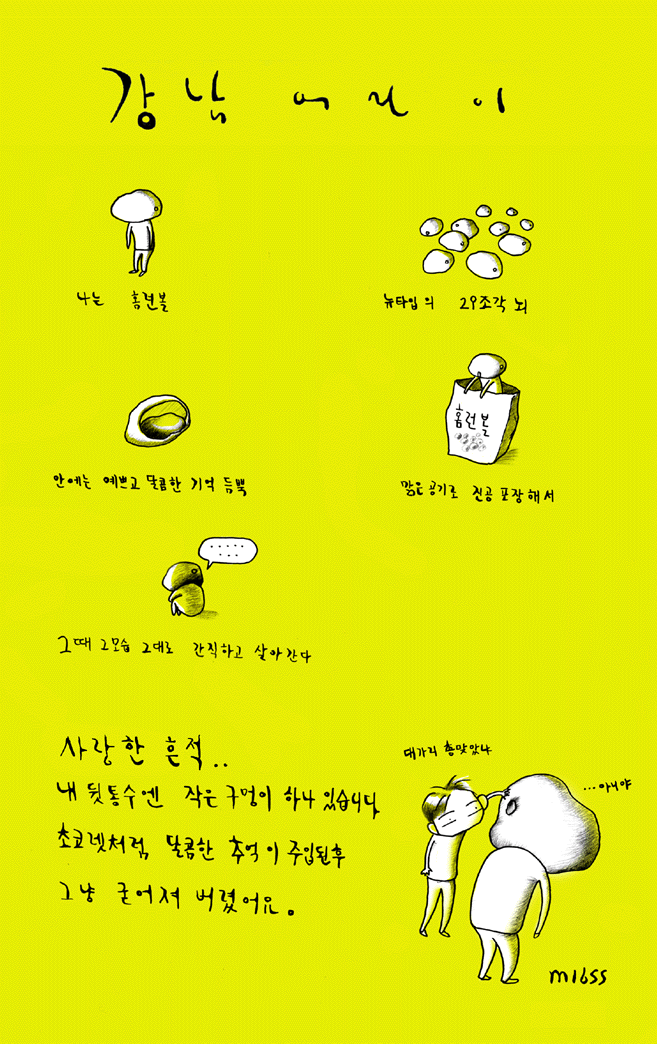 강남 어린이
나는 홈런볼
뉴타입의 29조각 뇌
안에는 예쁘고 달콤한 기억 듬뿍
홈런볼
맑은 공기로 진공포장해서
그때 그모습 그대로 간직하고 살아간다
사랑한 흔적..
내 뒷통수엔 작은 구멍이 하나 있습니다,
초코렛처럼, 달콤한 추억이 주입된후
그냥 굳어져 버렸어요.
대가리 총맞았냐
...아니야
m16ss